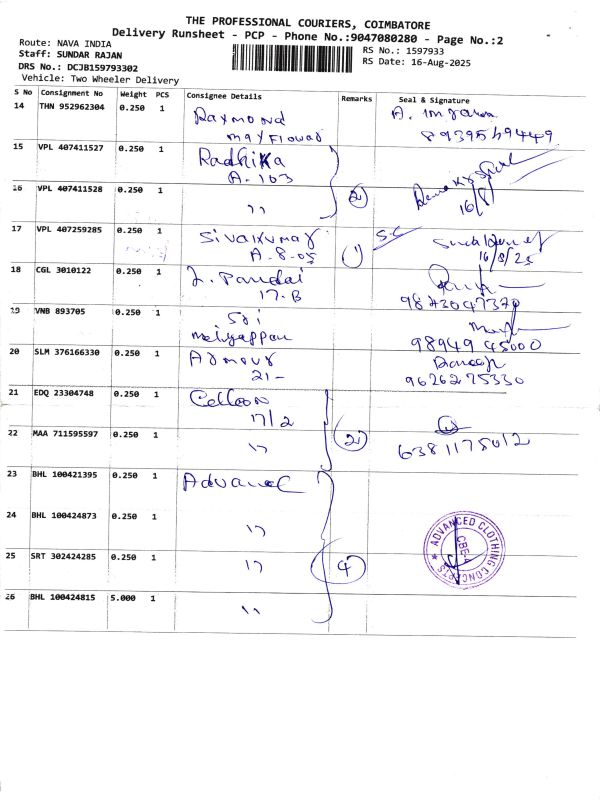 THE PROFESSIONAL COURIERS, COIMBATORE
Delivery Runsheet - PCP - Phone No.:9047080280 - Page No.:2
Route: NAVA INDIA
Staff: SUNDAR RAJAN
DRS No.: DCJB159793302
Vehicle: Two Wheeler Delivery
RS No.: 1597933
RS Date: 16-Aug-2025
S No Consignment No Weight PCS Consignee Details Remarks Seal & Signature
14 THN 952962304 0.250 1 Raymond A.
mayflower 8939569449
15 VPL 407411527 0.250 1 Radhika
A-103
16 VPL 407411528 0.250 1 " 2 16/8
17 VPL 407259285 0.250 1 Sivakumar 1 S.C
A-8-05 16/8/25
18 CGL 3010122 0.250 1 L. Pandai
17-B 9873047370
19 VNB 893705 0.250 1 Sri
Meiyappan 98949 45000
20 SLM 376166330 0.250 1 Armour
21- 9626275330
21 EDQ 23304748 0.250 1 Celloon
17/2
22 MAA 711595597 0.250 1 " 2 6381175012
23 BHL 100421395 0.250 1 Advance
24 BHL 100424873 0.250 1 "
25 SRT 302424285 0.250 1 " 4
26 BHL 100424815 5.000 1 "
ADVANCED CLOTHING CONCEPTS
CBE-4